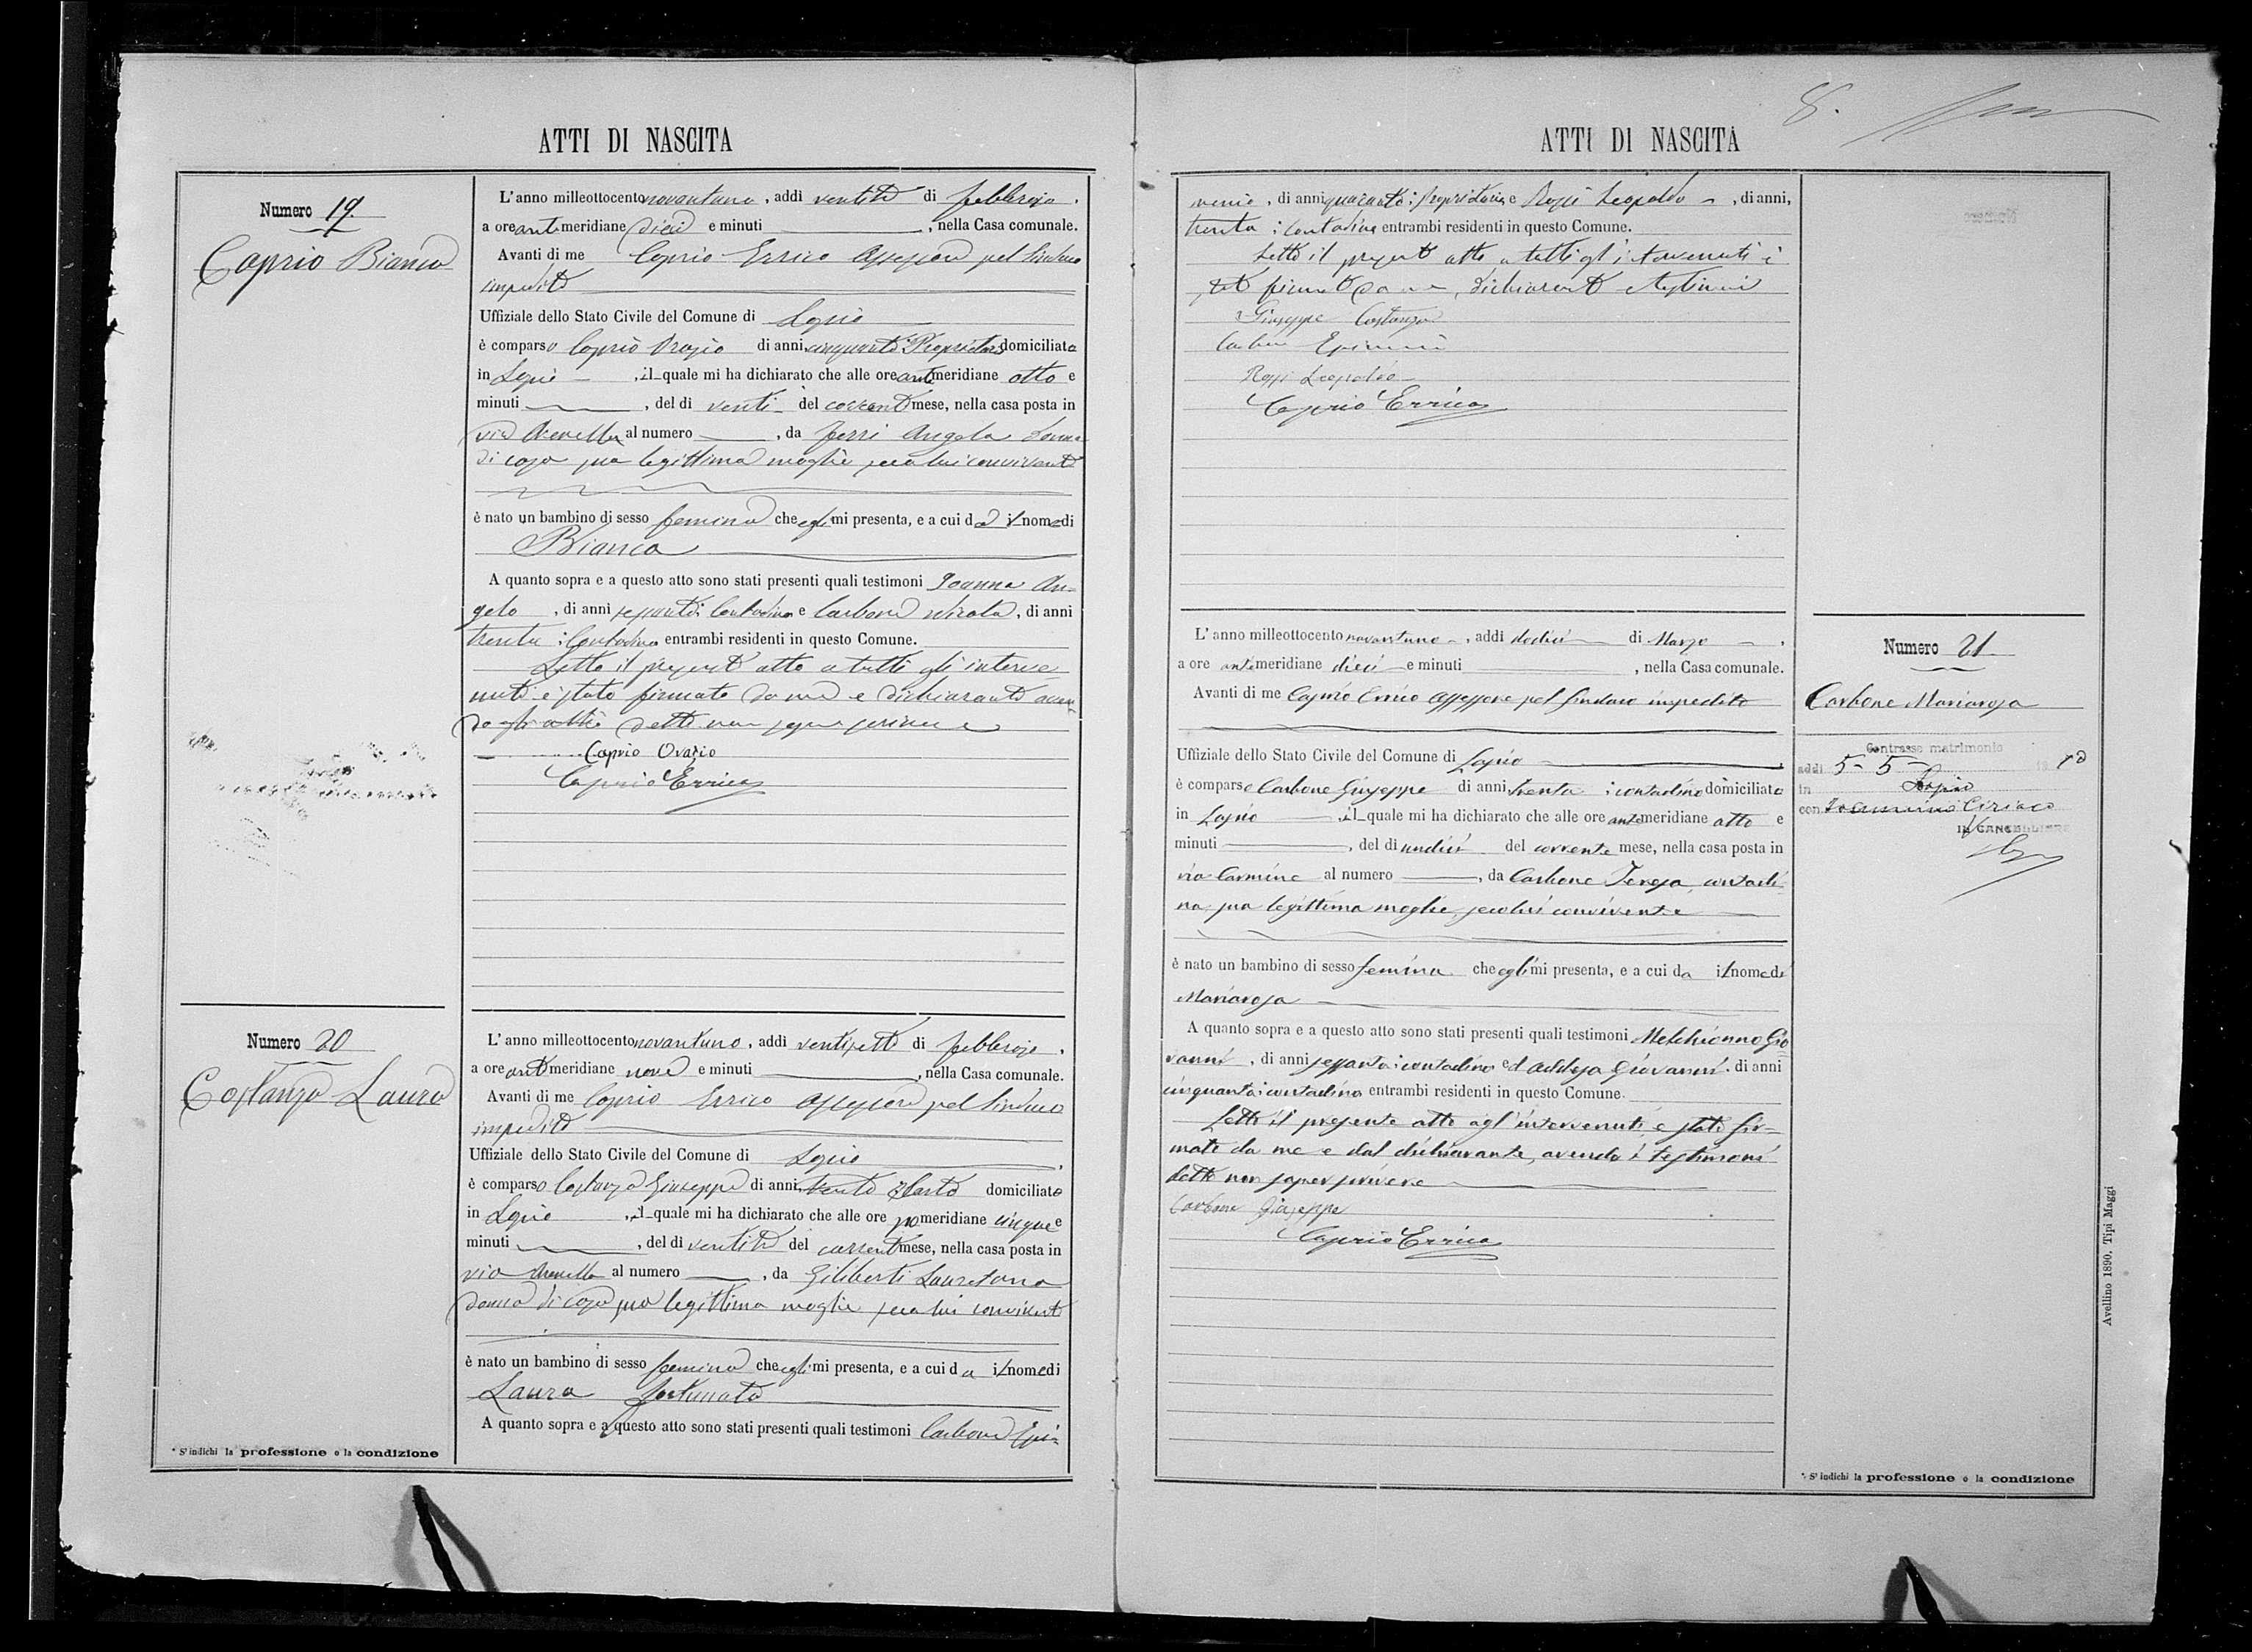 ATTI DI NASCITA
Numero 19.
Caprio Bianca
L'anno milleottocentonovantuno, addì ventitre di febbraio,
a ore antimeridiane dieci e minuti, nella Casa comunale.
Avanti di me Caprio Errico Assessore pel Sindaco
impedito
Uffiziale dello Stato Civile del Comune di Lapio
è comparso Caprio Orazio di anni cinquanta Proprietario domiciliato
in Lapio, il quale mi ha dichiarato che alle ore antimeridiane otto e
minuti, del dì venti del corrente mese, nella casa posta in
via al numero, da Ferri Angela donna
di casa sua legittima moglie seco lui convivente
è nato un bambino di sesso femina che egli mi presenta, e a cui dà il nome di
Bianca
A quanto sopra e a questo atto sono stati presenti quali testimoni Joanna An=
gelo, di anni sessanta Contadino e Carbone Nicola, di anni
trenta Contadino entrambi residenti in questo Comune.
Letto il presente atto a tutti gli interve
nuti è stato firmato da me e dichiarante aven
do gli altri detto non saper scrivere
Caprio Orazio
Caprio Errico
Numero 20
Costanzo Laura
L'anno milleottocentonovantuno, addì ventisette di febbraio,
a ore antimeridiane nove e minuti, nella Casa comunale.
Avanti di me Caprio Errico Assessore pel Sindaco
impedito
Uffiziale dello Stato Civile del Comune di Lapio,
è comparso Costanzo Giuseppe di anni trenta domiciliato
in Lapio, il quale mi ha dichiarato che alle ore pomeridiane cinque e
minuti, del dì ventitre del corrente mese, nella casa posta in
via al numero, da Giliberti Lauretana
donna di casa sua legittima moglie seco lui convivente
è nato un bambino di sesso femina che egli mi presenta, e a cui da il nome di
Laura Fortunata
A quanto sopra e a questo atto sono stati presenti quali testimoni Carbone Epi=
* S'indichi la professione o la condizione
ATTI DI NASCITA
8.
menio, di anni quaranta: proprietario e Rossi Leopoldo, di anni,
trenta: Contadino entrambi residenti in questo Comune.
Letto il presente atto a tutti gl'intervenuti è
stato firmato da me, dichiarante e testimoni
Giuseppe Costanzo
Carbone Epimenio
Rossi Leopoldo
Caprio Errico
Numero 21
Carbone Mariarosa
L'anno milleottocento novantuno, addì dodici di Marzo,
a ore antimeridiane dieci e minuti, nella Casa comunale.
Avanti di me Caprio Errico Assessore pel Sindaco impedito
Uffiziale dello Stato Civile del Comune di Lapio
è comparso Carbone Giuseppe di anni trenta: contadino domiciliato
in Lapio, il quale mi ha dichiarato che alle ore antimeridiane otto e
minuti, del dì undici del corrente mese, nella casa posta in
via Carmine al numero, da Carbone Teresa, contadi
na sua legittima moglie, secolui convivente
è nato un bambino di sesso femina che egli mi presenta, e a cui da il nome di
Mariarosa
A quanto sopra e a questo atto sono stati presenti quali testimoni Melchionno Gio
vanni, di anni sessanta: contadino ed Giovanni, di anni
cinquanta: contadino entrambi residenti in questo Comune.
Letto il presente atto agl'intervenuti, è stato fir=
mato da me e dal dichiarante, avendo i testimoni
detto non saper scrivere
Carbone Giuseppe
Caprio Errico
Contrasse matrimonio
addì 5 - 5 -
in Lapio
con Ciriaco
IL CANCELLIERE
* S'indichi la professione o la condizione
Avellino 1890. Tipi Maggi